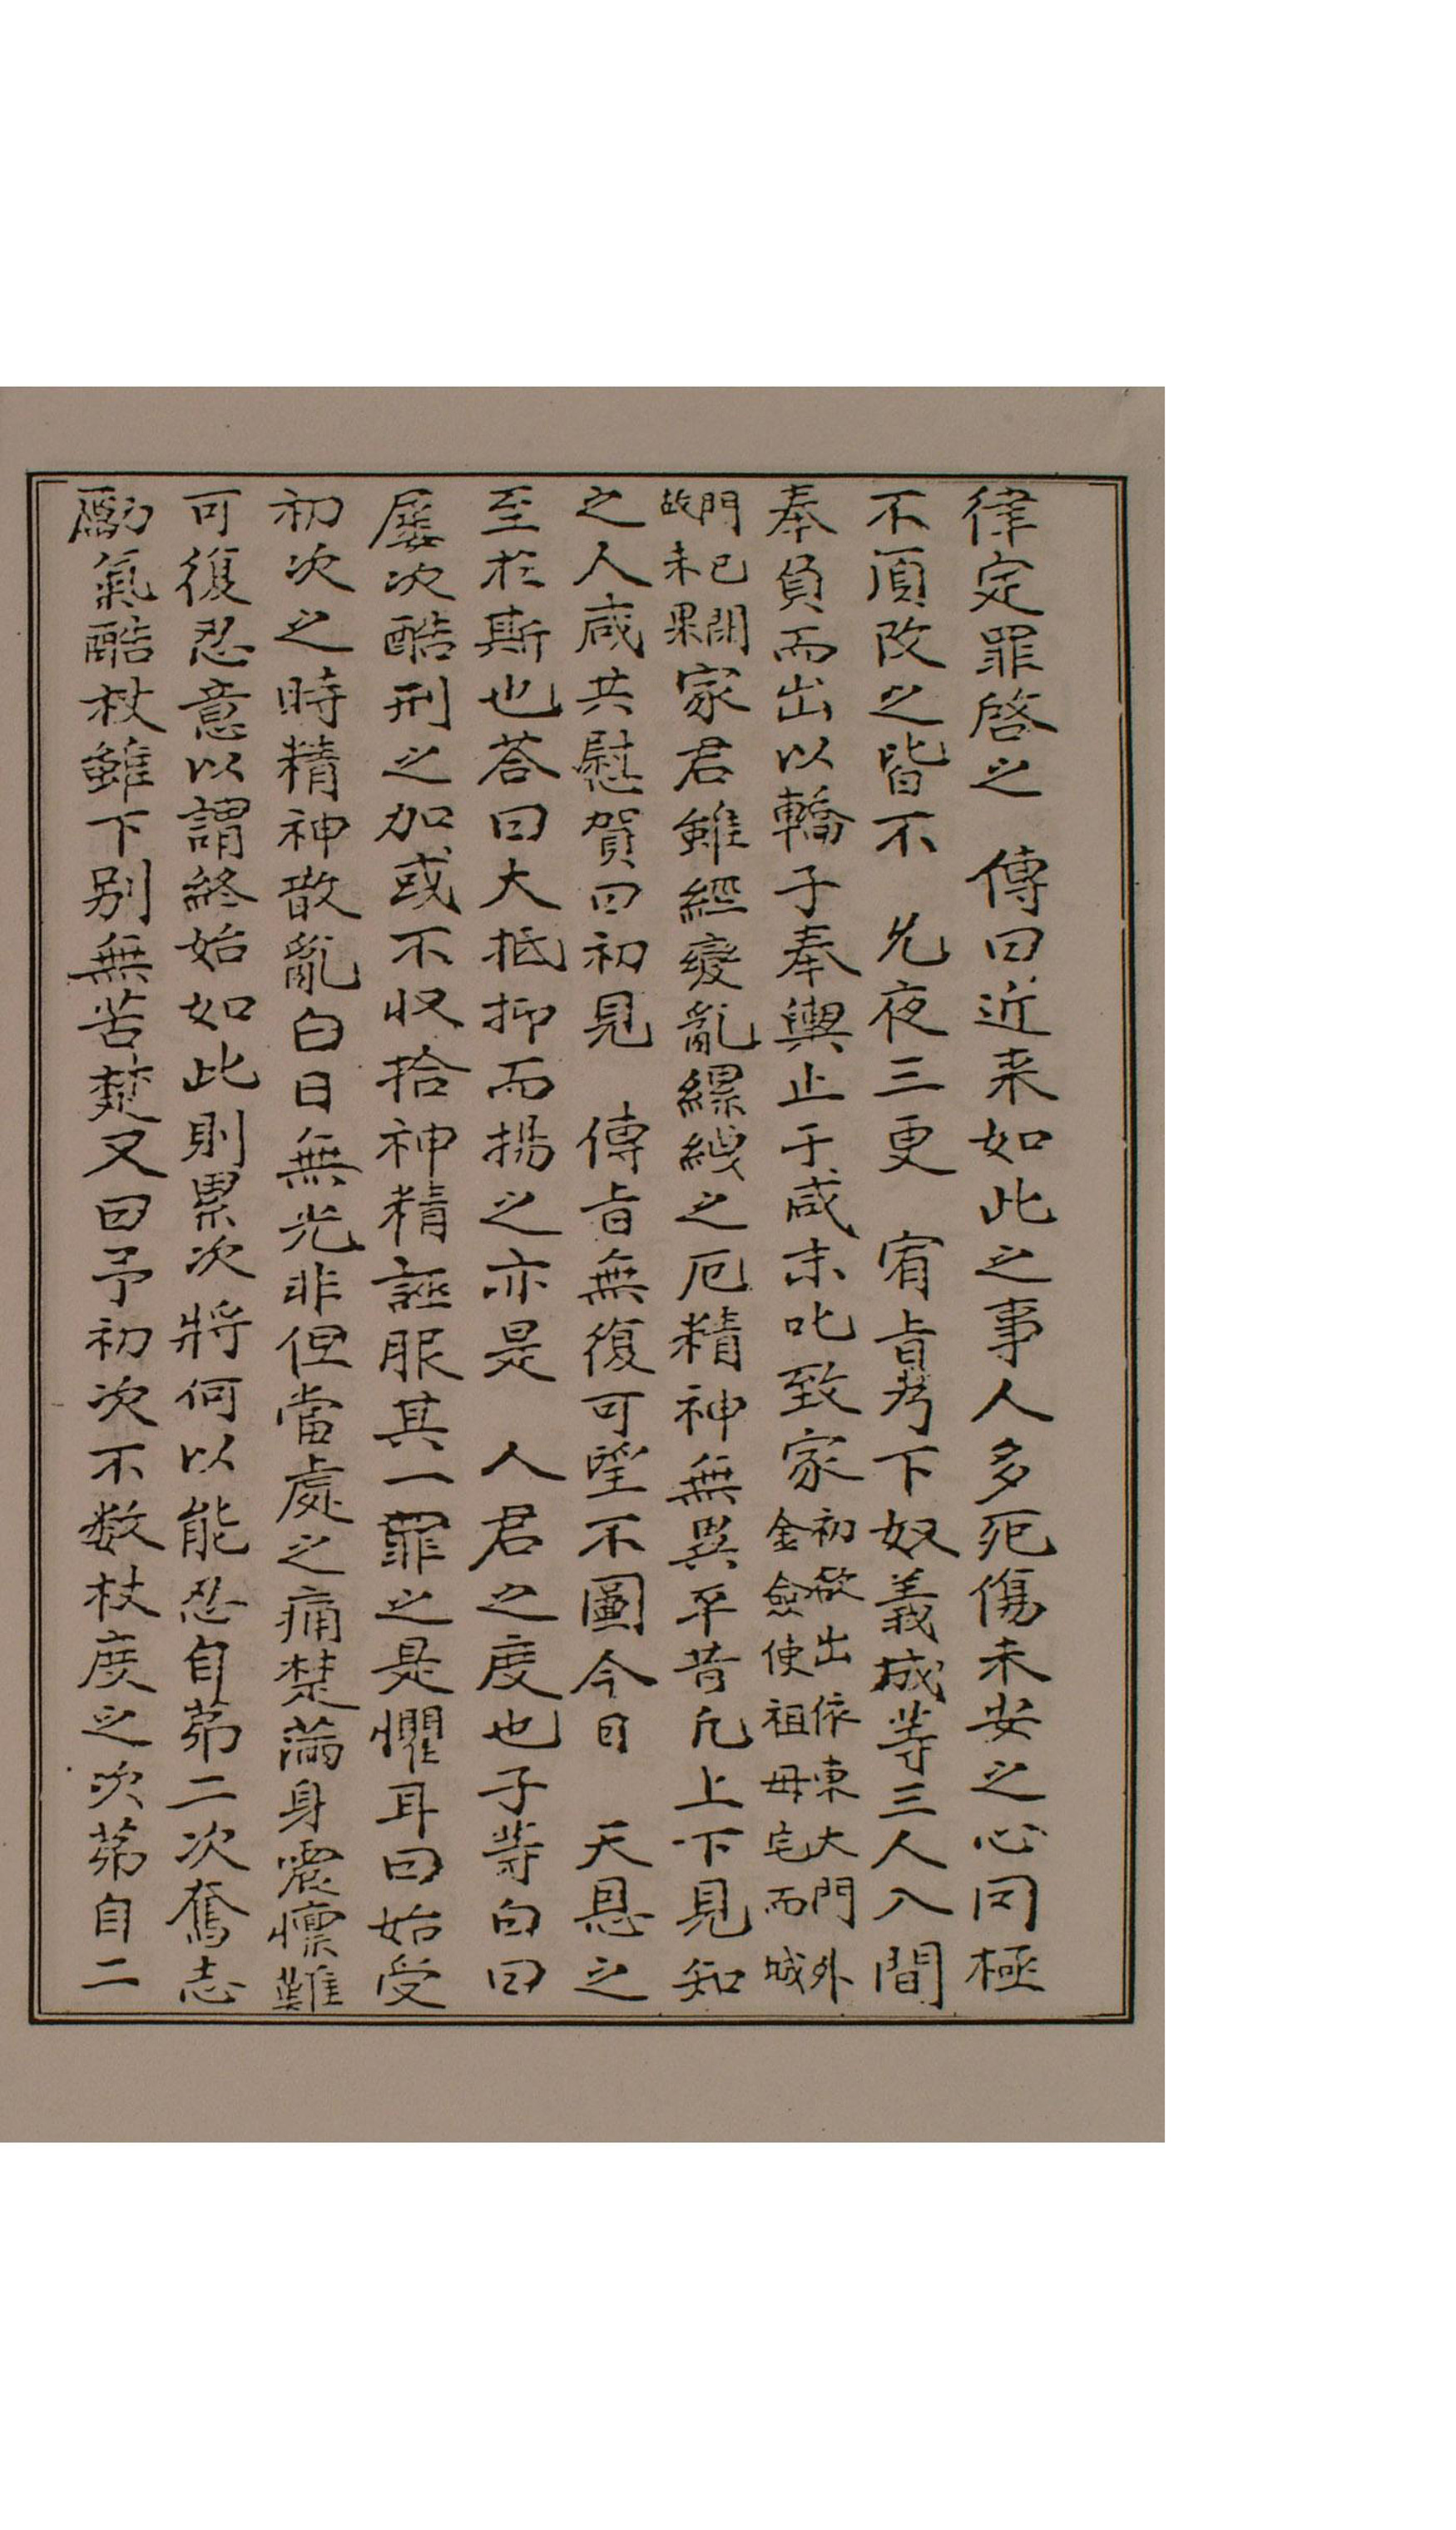 律定罪啓之　傳曰近来如此之事人多死傷未安之心罔極
不須改之皆不　允夜三更　宥旨考下奴義成等三人入間
奉負而出以轎子奉輿止于咸末叱致家
初欲出依東大門外
金僉使祖母宅而城
門已閉
故未果
家君雖經變亂縲絏之厄精神無異平昔凡上下見知
之人咸共慰賀曰初見　傳旨無復可望不圖今日　天恩之
至於斯也荅曰大抵抑而揚之亦是　人君之度也子等白曰
屡次酷刑之加或不收拾神精誣服其一罪之是懼耳曰始受
初次之時精神散亂白日無光非但當處之痛楚滿身震懍難
可復忍意以謂終始如此則累次將何以能忍自苐二次奮志
勵氣酷杖雖下别無苦楚又曰予初次不数杖度之次苐自二